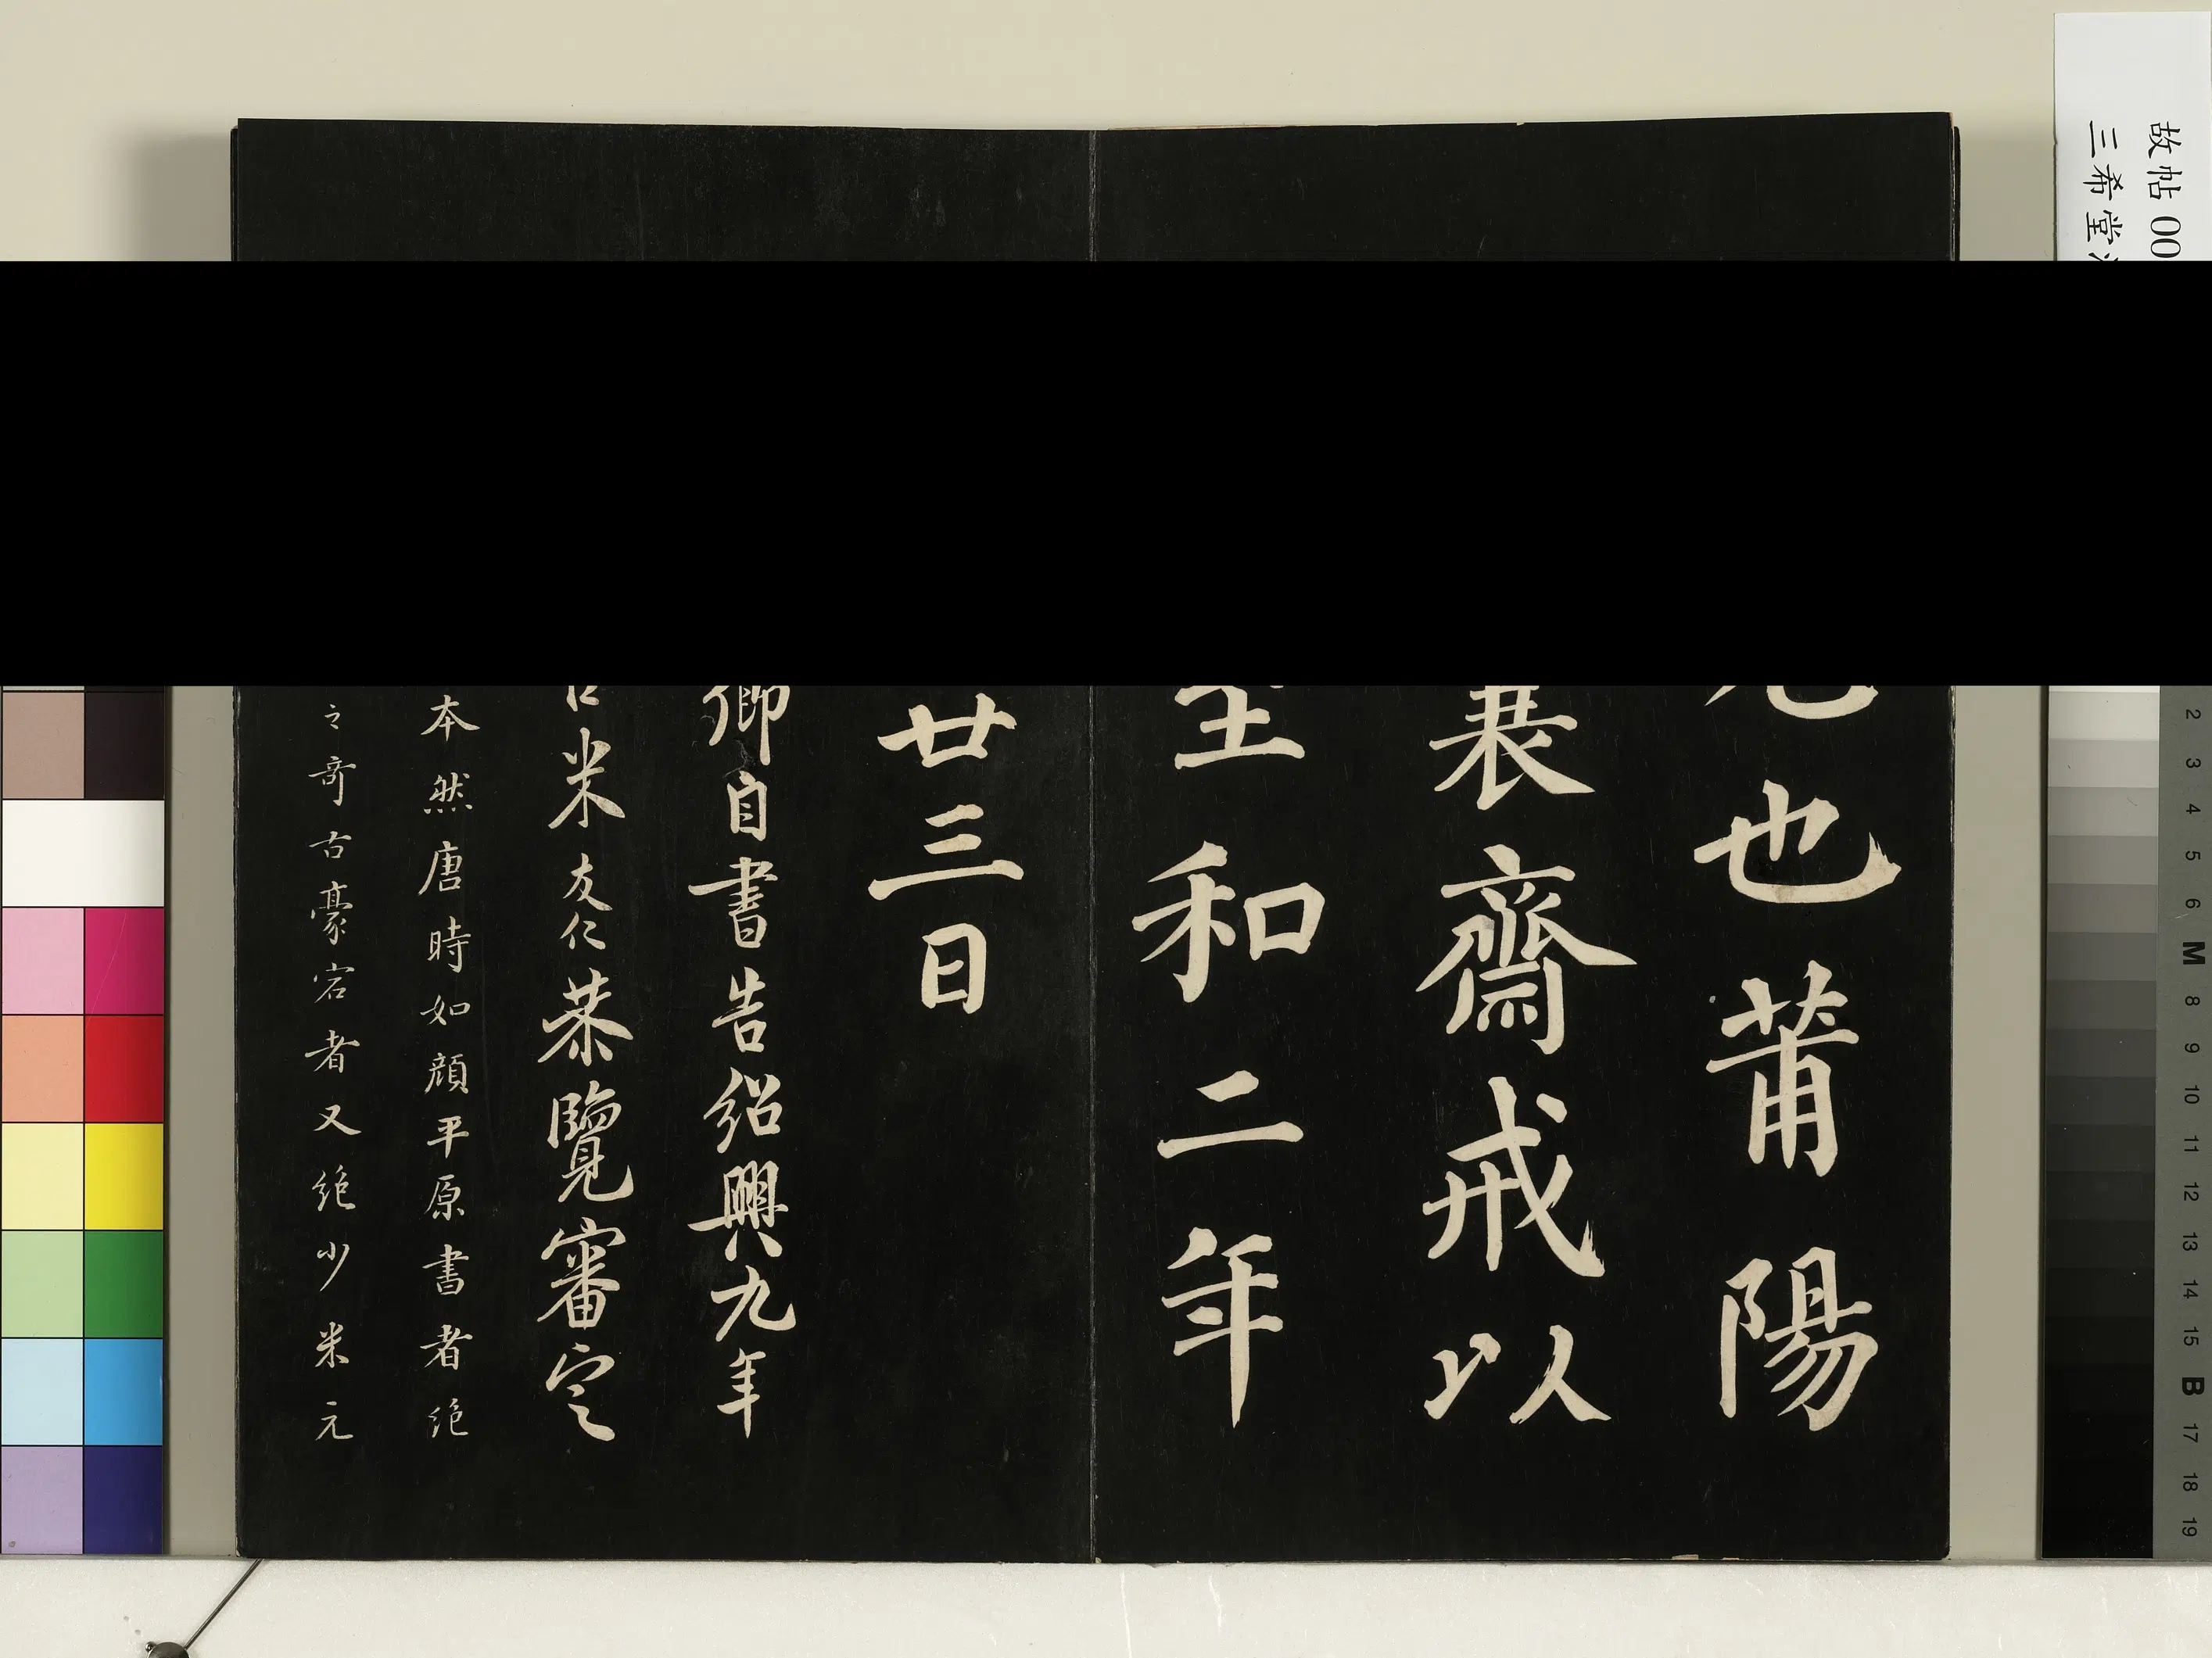 也莆陽
齋戒以
和二年
廿三日
自書告紹興九年
米友仁恭覽審定
本然唐時如顏平原書者絕
之奇古豪宕者又絕少米元
故帖00
三希堂
2
3
4
5
6
M
8
9
10
11
12
13
14
15
B
17
18
19